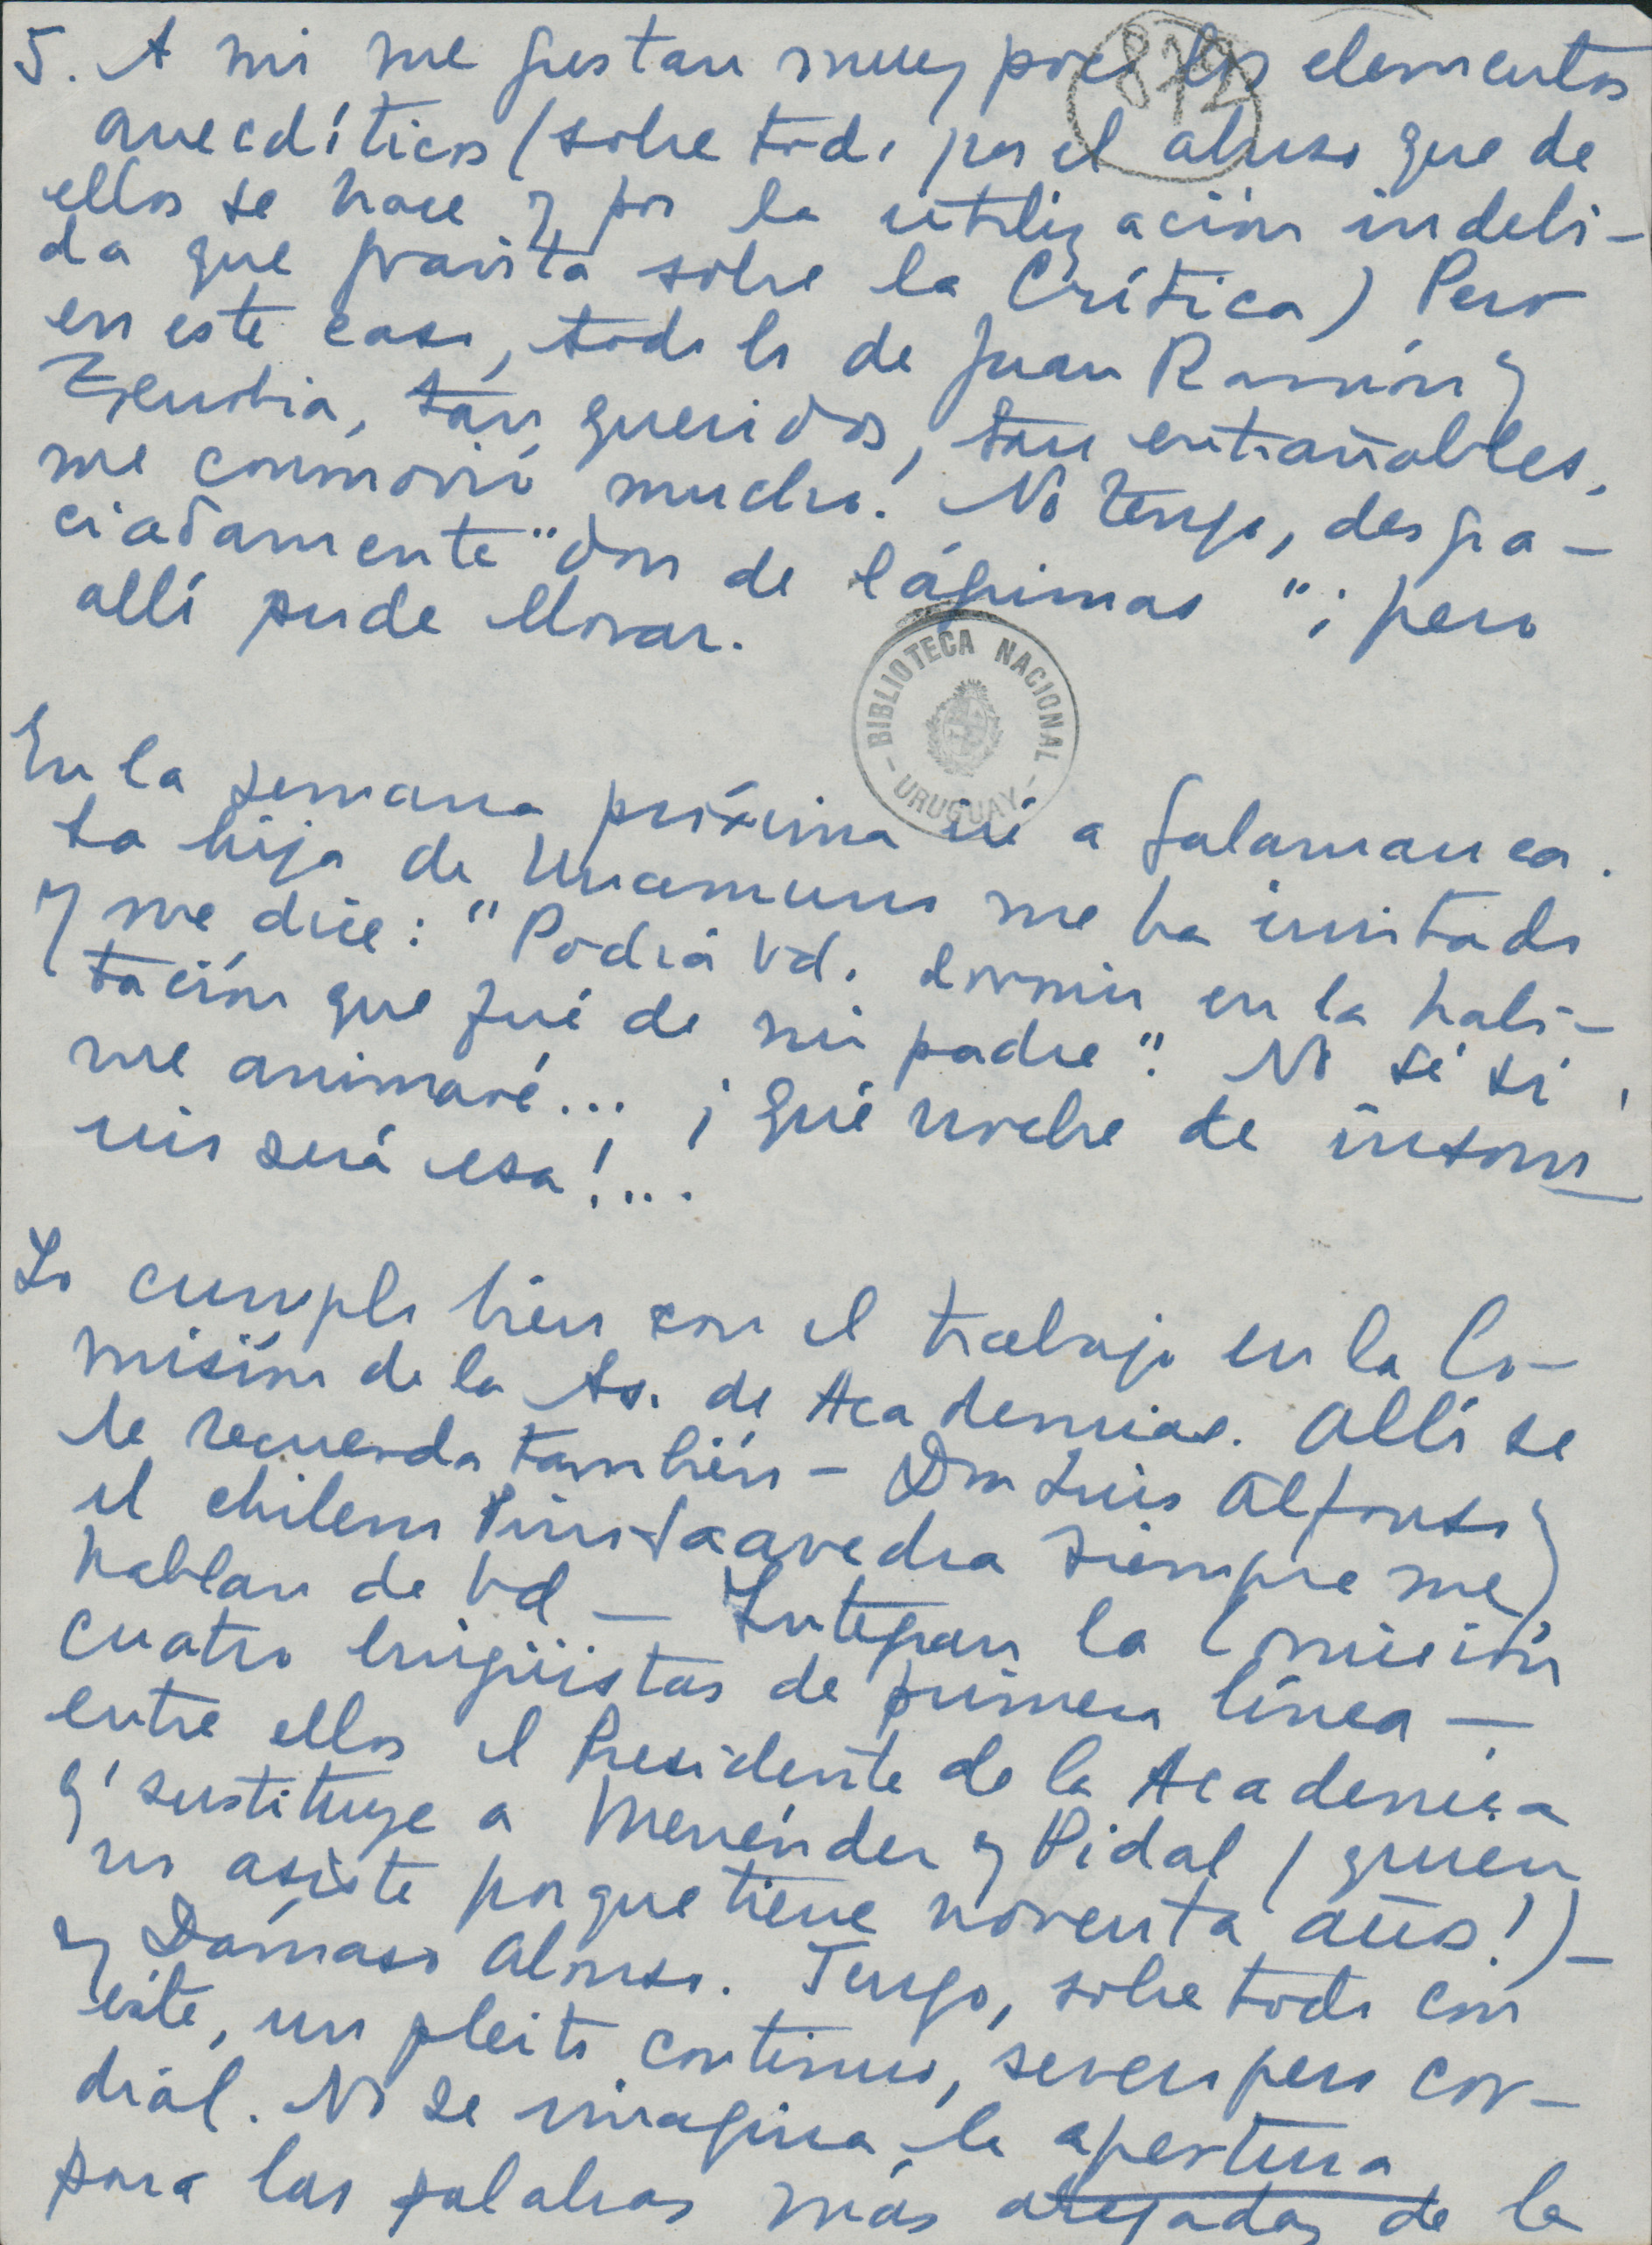 872
5. A mi me gustan muy poco los elementos
anecdóticos (sobre todo por el abuso que de
ellos se hace y por la utilización indebi-
da que gravita sobre la Crítica) Pero
en este caso, todo lo de Juan Ramón y
Zenobia, tan queridos, tan entrañables,
me conmovió mucho. No tengo, desgra-
ciadamente "don de lágrimas"; pero
allí pude llorar.
BIBLIOTECA NACIONAL
- URUGUAY -
En la semana próxima iré a Salamanca.
La hija de Unamuno me ha invitado
y me dice: "Podrá Vd. dormir en la habi-
tación que fué de mi padre". No sé si
me animaré... ¡Qué noche de insom
nio será esa!...
Yo cumplo bien con el trabajo en la Co-
misión de la As. de Academias. Allí se
le recuerda también - Don Luis Alfonso y
el chileno Pino Saavedra siempre me
hablan de Vd - Integran la Comisión
cuatro lingüistas de primera línea -
entre ellos el Presidente de la Academia
q' sustituye a Menéndez y Pidal (quien
no asiste porque tiene noventa años!) -
y Dámaso Alonso. Tengo, sobre todo con
éste, un pleito continuo, severo pero cor-
dial. No se imagina la apertura
para las palabras más arejadas de la